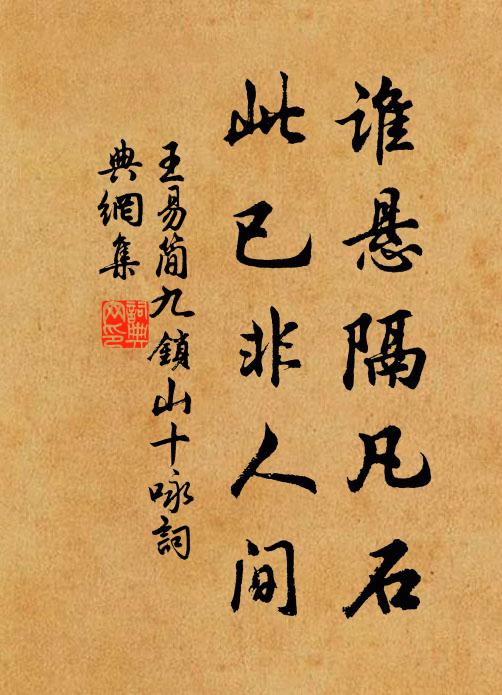 谁悬隔凡石
此已非人间
王易简九鎖山十咏詞
典網集
詞典
网印